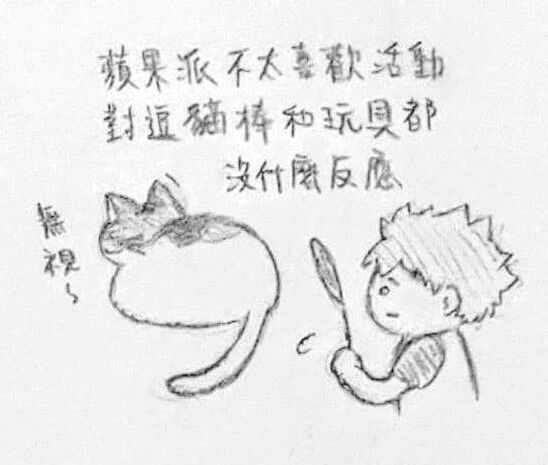 蘋果派不太喜歡活動
對逗貓棒和玩具都
沒什麼反應
無視~